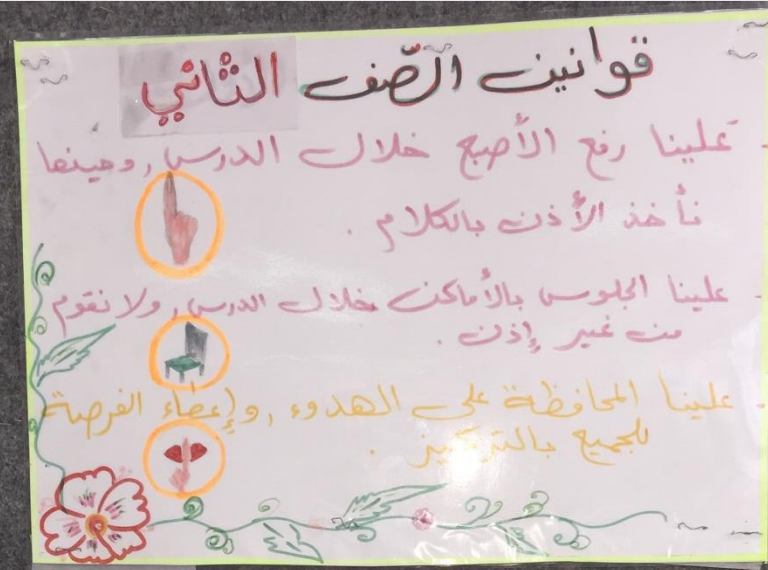 قوانين الصّف الثاني
- علينا رفع الأصبع خلال الدرس, وحينها
نأخذ الأذن بالكلام .
- علينا الجلوس بالأماكن خلال الدرس, ولا نقوم
من غير إذن .
- علينا المحافظة على الهدوء, وإعطاء الفرصة
للجميع بالتركيز .